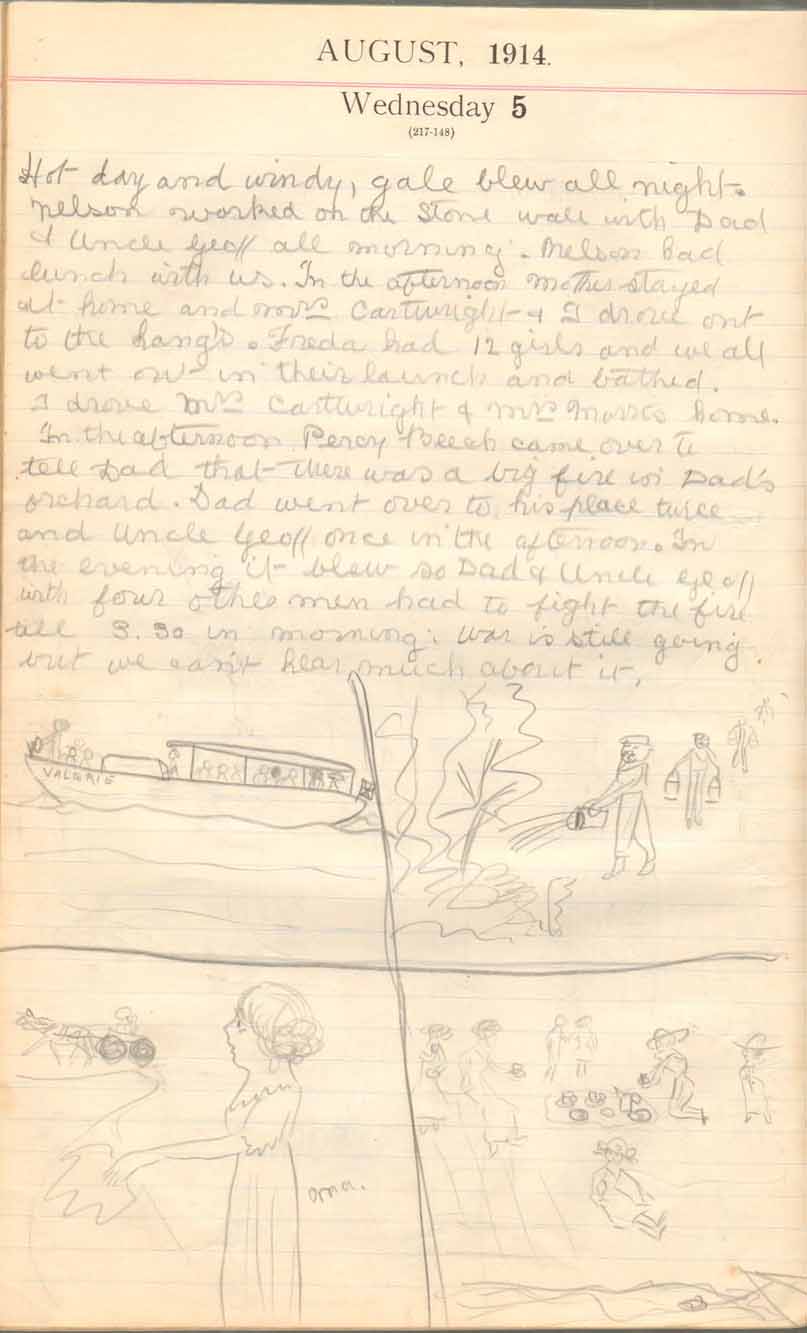 AUGUST, 1914.
Wednesday 5
(217-148)
Hot day and windy, gale blew all night.
Nelson worked on the Stone wall with Dad
& Uncle Geoff all morning. Nelson had
lunch with us. In the afternoon Mother stayed
at home and Mrs Cartwright & I drove out
to the Lang's. Freda had 12 girls and we all
went out in their launch and bathed.
I drove Mrs Cartwright & Mrs home.
In the afternoon Percy Beech came over to
tell Dad that there was a big fire in Dad's
orchard. Dad went over to his place twice
and Uncle Geoff once in the afternoon. In
the evening it blew so Dad & Uncle Geoff
with four other men had to fight the fire
till 3.30 in morning. War is still going
but we can't hear much about it.
VALERIE